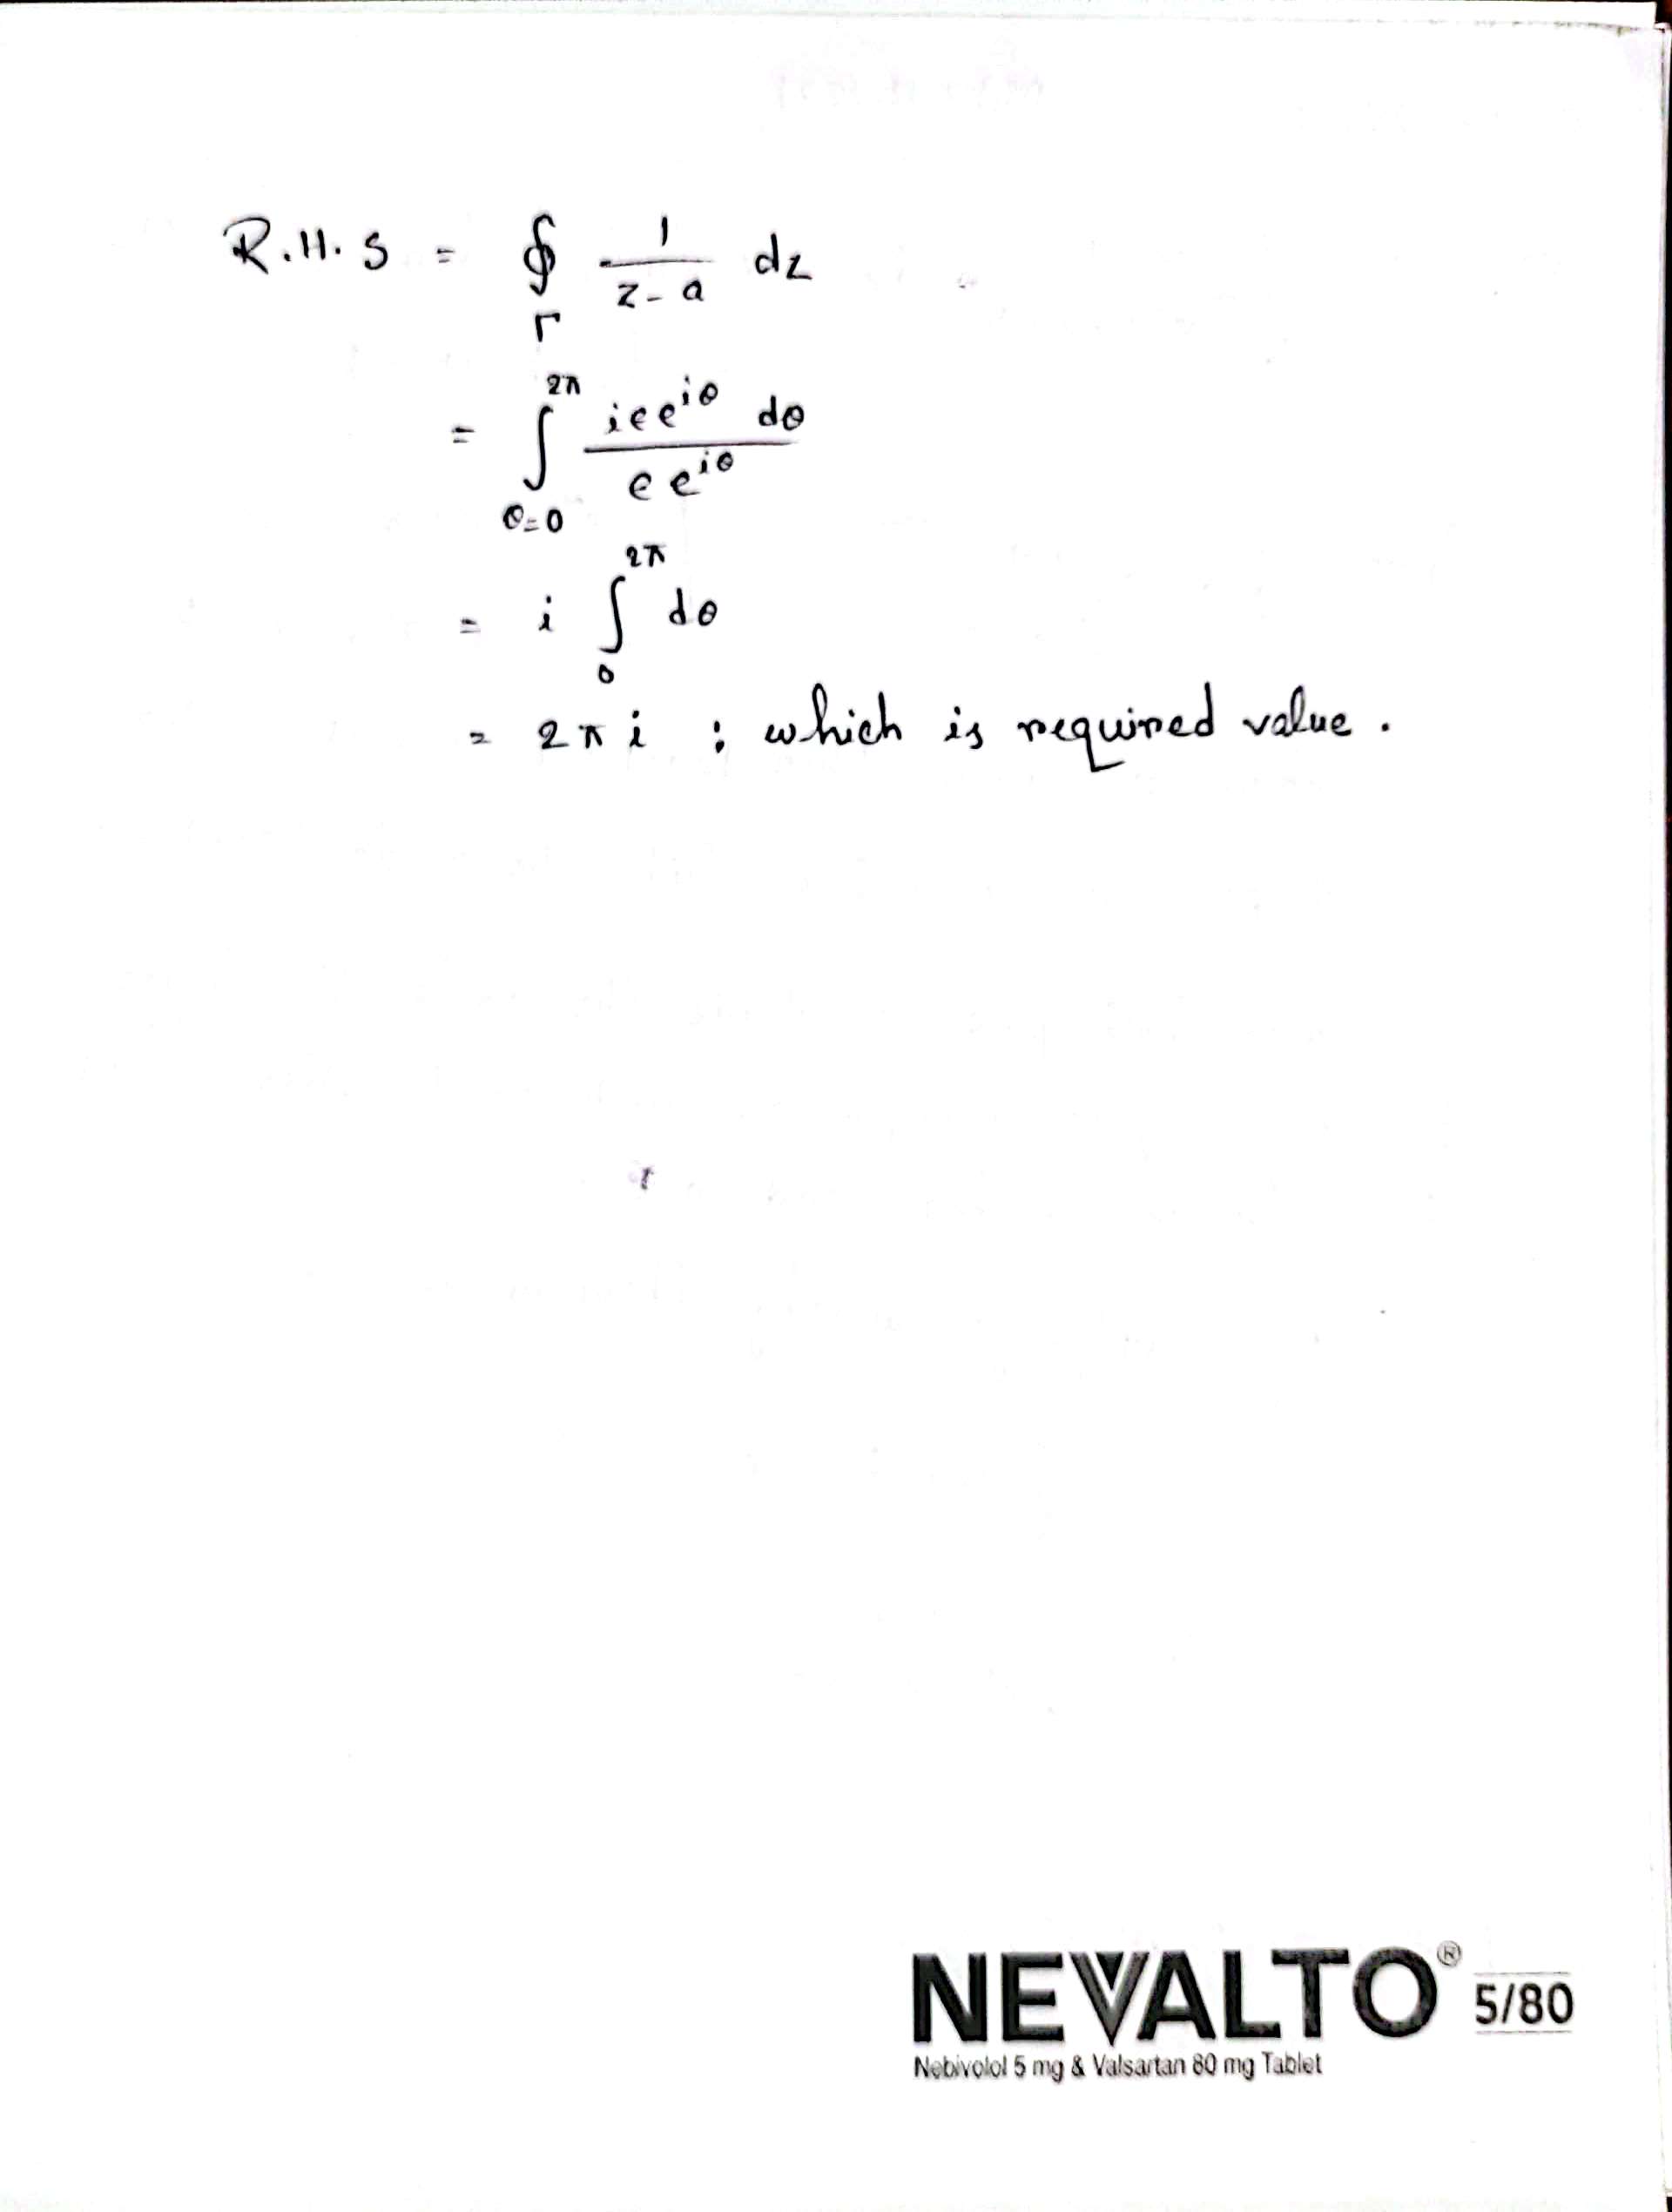 R.H.S = ∮_Γ 1/(z-a) dz
= ∫_{θ=0}^{2π} iϵe^{iθ} dθ / ϵe^{iθ}
= i ∫_0^{2π} dθ
= 2πi : which is required value.
NEVALTO® 5/80
Nebivolol 5 mg & Valsartan 80 mg Tablet